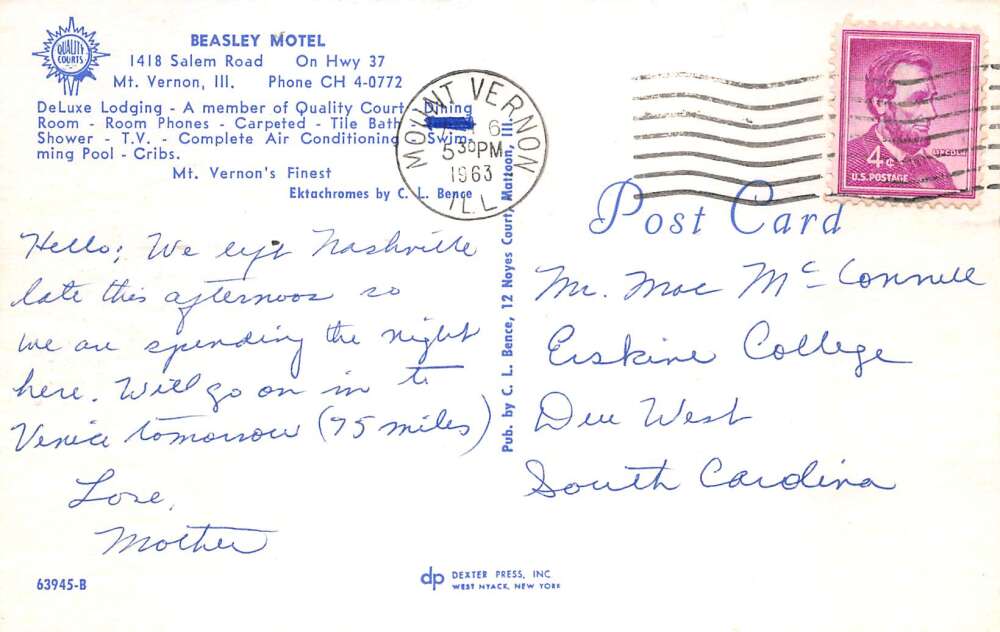 QUALITY
COURTS
BEASLEY MOTEL
1418 Salem Road On Hwy 37
Mt. Vernon, Ill. Phone CH 4-0772
DeLuxe Lodging - A member of Quality Court - Dining
Room - Room Phones - Carpeted - Tile Bath
Shower - T.V. - Complete Air Conditioning - Swim
ming Pool - Cribs.
Mt. Vernon's Finest
Ektachromes by C. L. Bence
MOUNT VERNON
6
530PM
1963
ILL
4¢
LINCOLN
U.S. POSTAGE
Post Card
Pub. by C. L. Bence, 12 Noyes Court, Mattoon, Ill.
Hello; We left Nashville
late this afternoon so
we are spending the night
here. Will go on in to
Venice tomorrow (75 miles)
Love,
Mother
Mr. Mac McConnell
Erskine College
Due West
South Carolina
63945-B
dp DEXTER PRESS, INC
WEST NYACK, NEW YORK